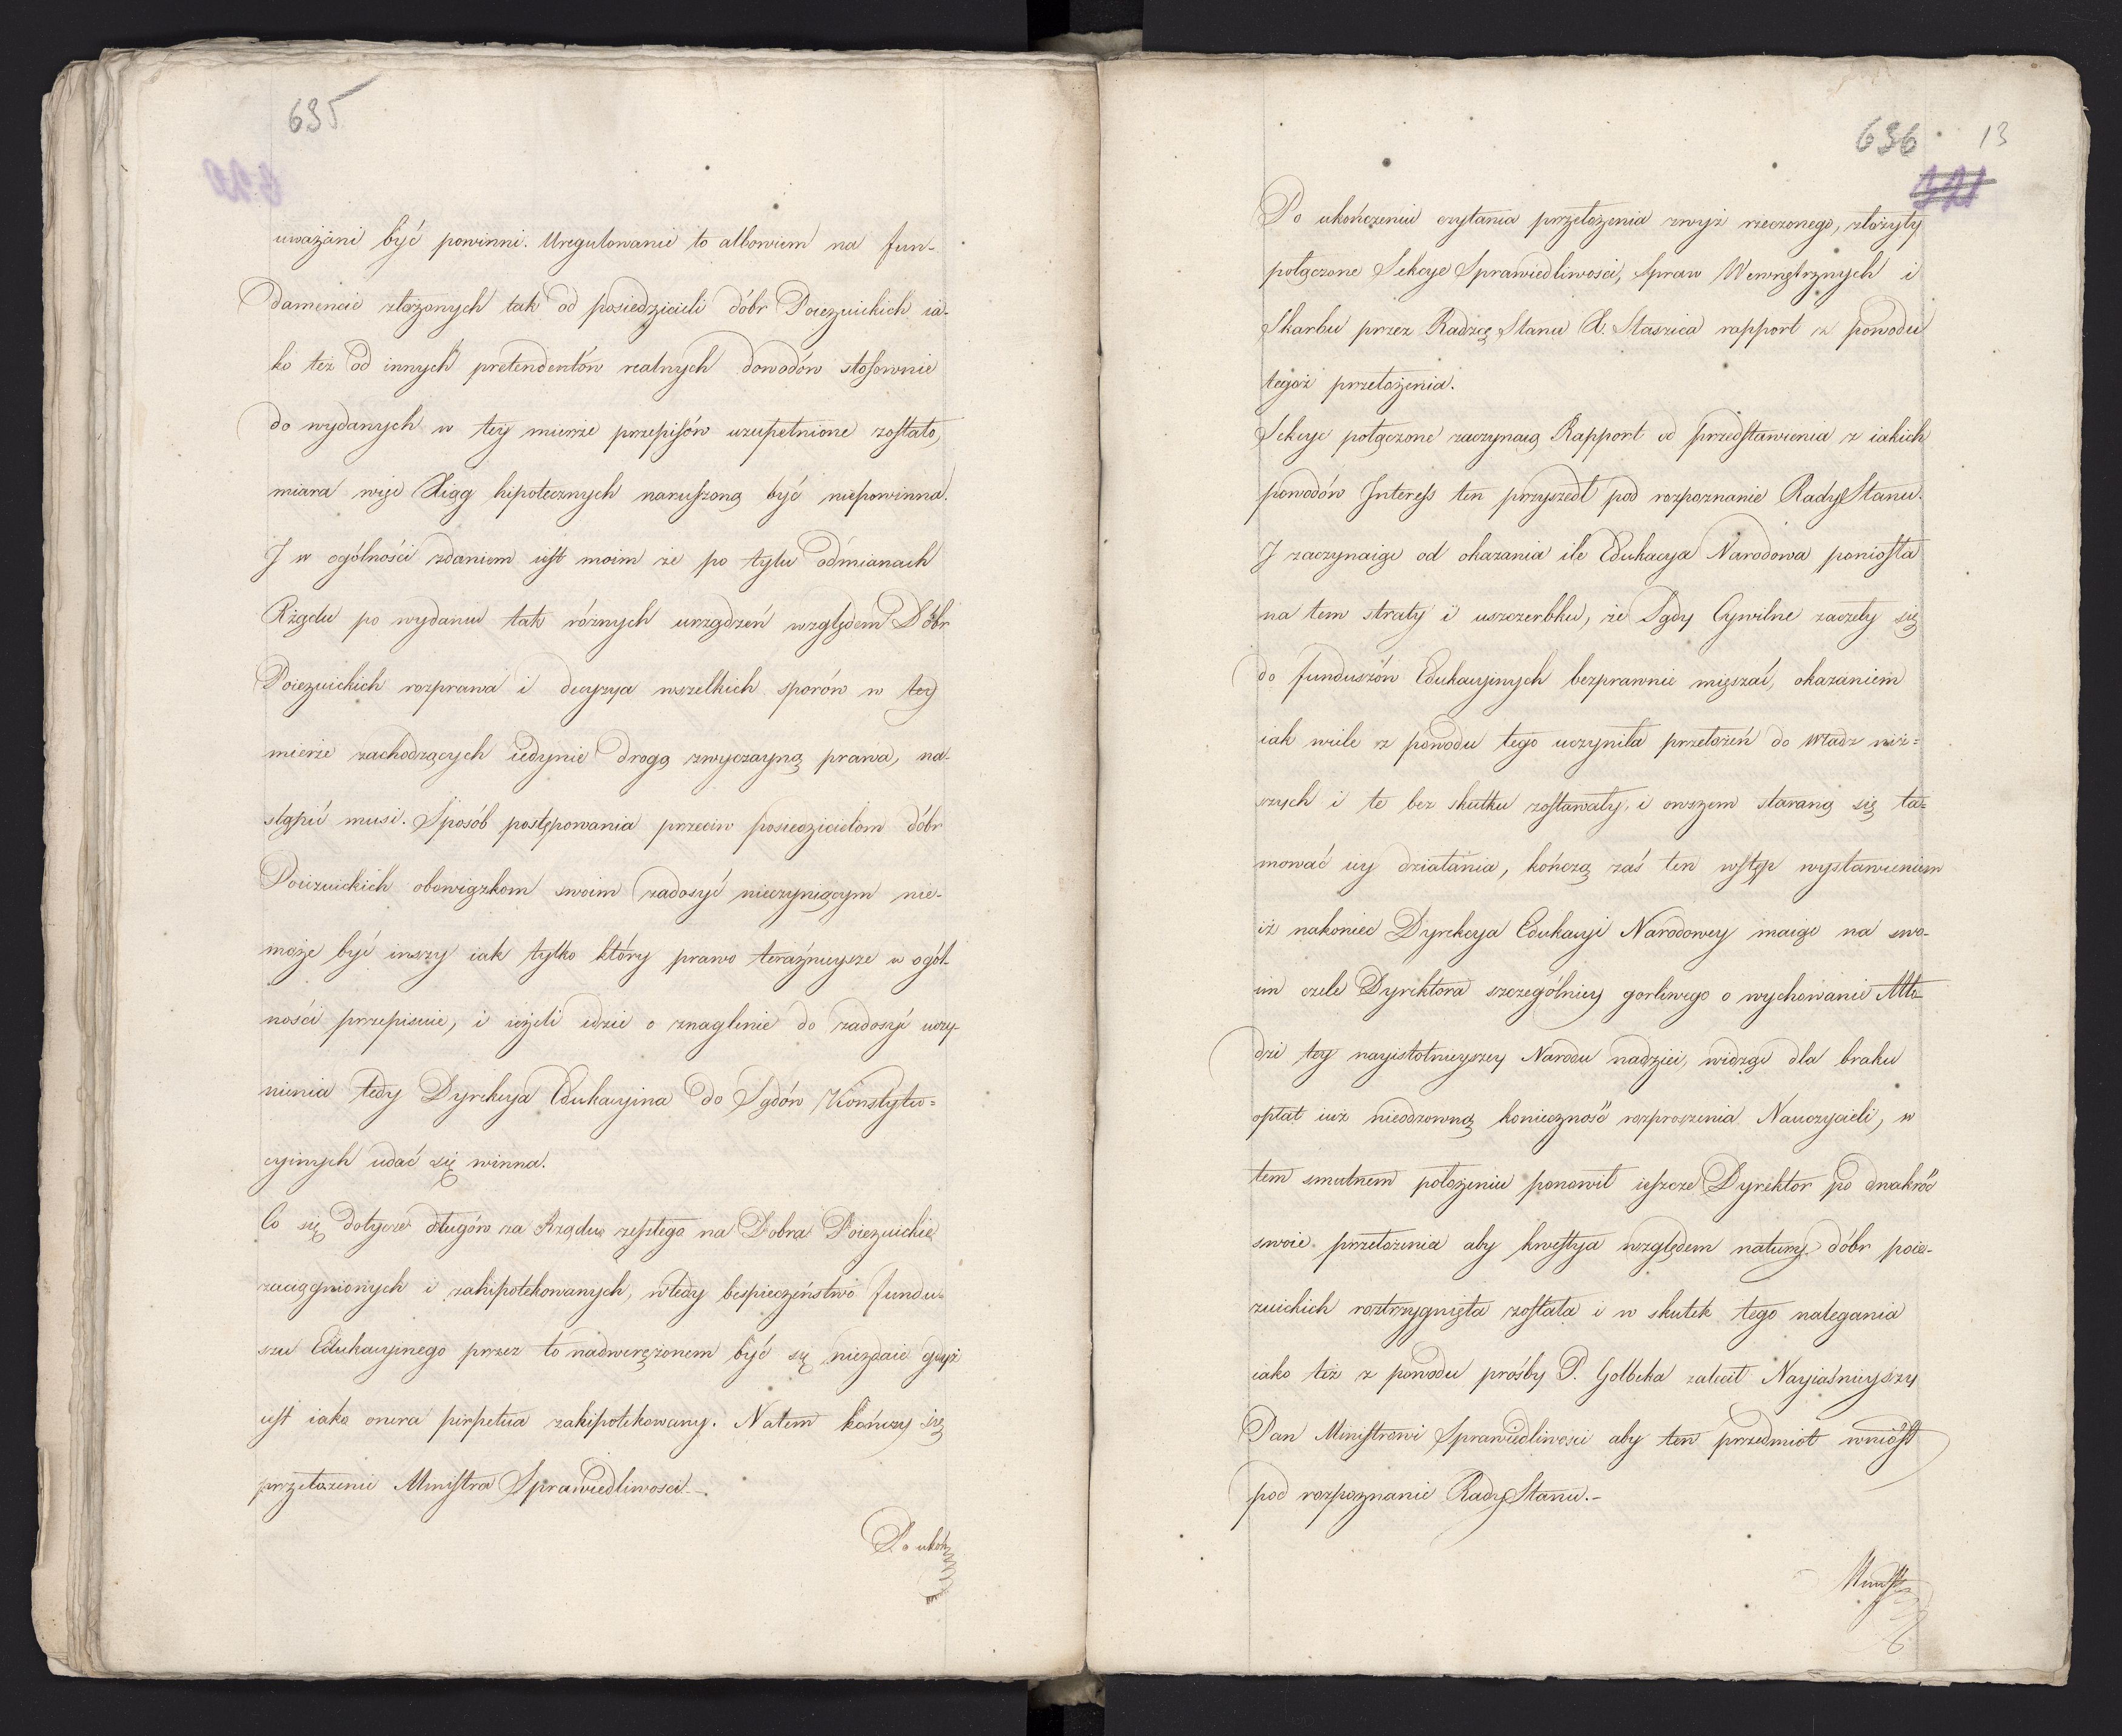 635
uważani być powinni. Uregulowanie to albowiem na fun-
damencie złożonych tak od posiedzicieli dóbr Poiezuickich ia-
ko też od innych pretendentów realnych dowodów stosownie
do wydanych w tey mierze przepisów uzupełnione zostało,
miara więc Xiąg hipotecznych naruszoną być niepowinna.
I w ogólności zdaniem iest moim że po tylu odmianach
Rządu po wydaniu tak różnych urządzeń względem Dóbr
Poiezuickich rozprawa i decyzya wszelkich sporów w tey
mierze zachodzących iedynie drogą zwyczayną prawa, na-
stąpić musi. Sposób postępowania przeciw posiedzicielom dóbr
Poiezuickich obowiązkom swoim zadosyć nieczyniącym nie-
może być inszy iak tylko który prawo teraźnieysze w ogól-
ności przepisuie, i ieżeli idzie o znaglenie do zadosyć uczy-
nienia tedy Dyrekcya Edukacyina do Sądów Konstytu-
cyinych udać się winna.
Co się dotycze długów za Rządu zeszłego na Dobra Poiezuickie
zaciągnionych i zahipotekowanych, wtedy bespieczeństwo fundu-
szu Edukacyinego przez to nadwerężonem być się niezdaie gdyż
iest iako onera perpetua zahipotekowany. Natem kończy się
przełożenie Ministra Sprawiedliwości.-
Po ukoń
636 13
Po ukończeniu czytania przełożenia zwyż rzeczonego, złożyły
połączone Sekcye Sprawiedliwości, Spraw Wewnętrznych i
Skarbu przez Radzcę Stanu X. Staszica rapport z powodu
tegoż przełożenia.
Sekcye połączone zaczynaią Rapport od przedstawienia z iakich
powodów Interess ten przyszedł pod rozpoznanie Rady Stanu.
I zaczynaiąc od okazania ile Edukacya Narodowa poniosła
na tem straty i uszczerbku, że Sądy Cywilne zaczeły się
do funduszów Edukacyinych bezprawnie mięszać, okazaniem
iak wiele z powodu tego uczyniła przełożeń do Władz niż-
szych i te bez skutku zostawały, i owszem starano się ta-
mować iey działania, kończą zaś ten wstęp wystawieniem
iż nakoniec Dyrekcya Edukacyi Narodowey maiąc na swo-
im czele Dyrektora szczególniey gorliwego o wychowanie Mło-
dzi tey nayistotnieyszey Narodu nadziei, widząc dla braku
opłat iuż nieodzowną konieczność rozproszenia Nauczycieli, w
tem smutnem położeniu ponowił ieszcze Dyrektor po dwakroć
swoie przełożenia aby kwestya względem natury dóbr poie-
zuickich roztrzygnięta została i w skutek tego nalegania
iako też z powodu prośby P. Golbeka zalecił Nayiaśnieyszy
Pan Ministrowi Sprawiedliwości aby ten przedmiot wniósł
pod rozpoznanie Rady Stanu.-